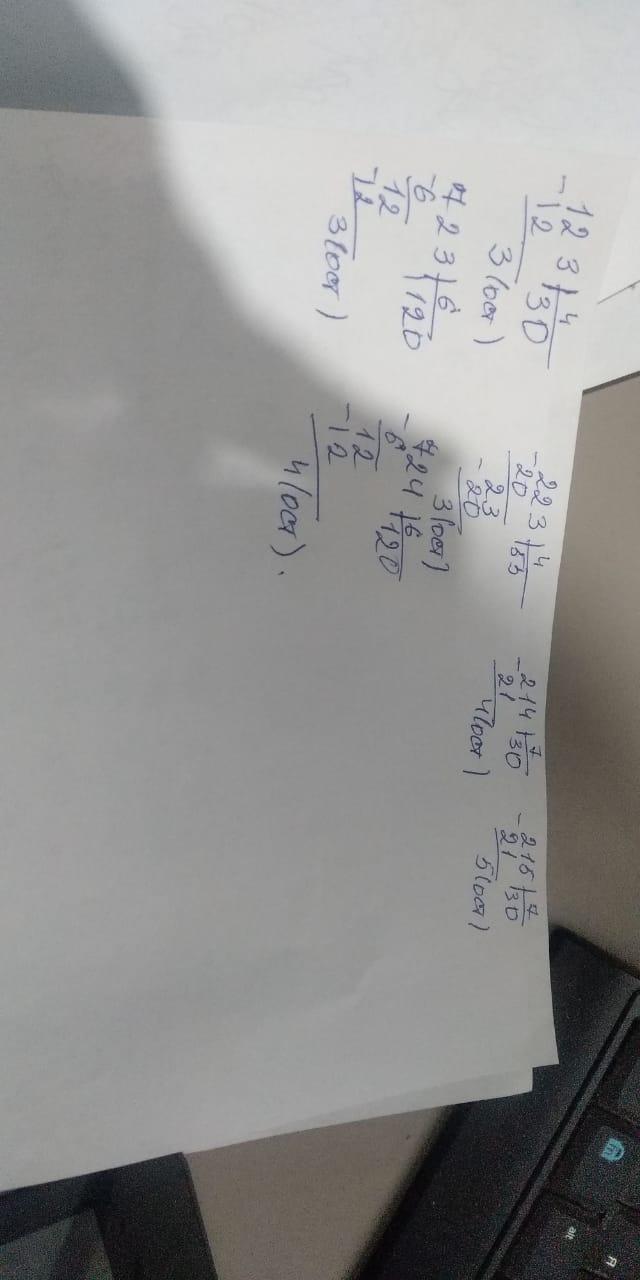 -123|4
12 30
3(ост)
-223|4
20 55
-23
20
3(ост)
-214|7
21 30
4(ост)
-215|7
21 30
5(ост)
723|6
-6 120
12
-12
3(ост)
724|6
-6 120
12
-12
4(ост).